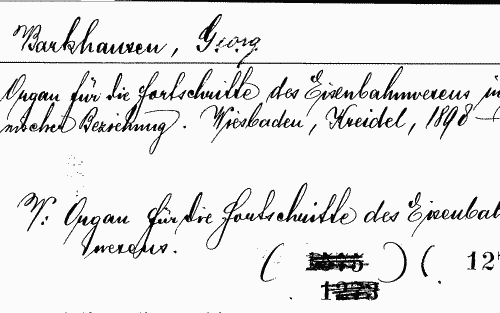 Barkhausen, Georg
Organ für die Fortschritte des Eisenbahnwesens in
nischer Beziehung. Wiesbaden, Kreidel, 1898 —
V: Organ für die Fortschritte des Eisenbah
wesens.
( ) ( 12